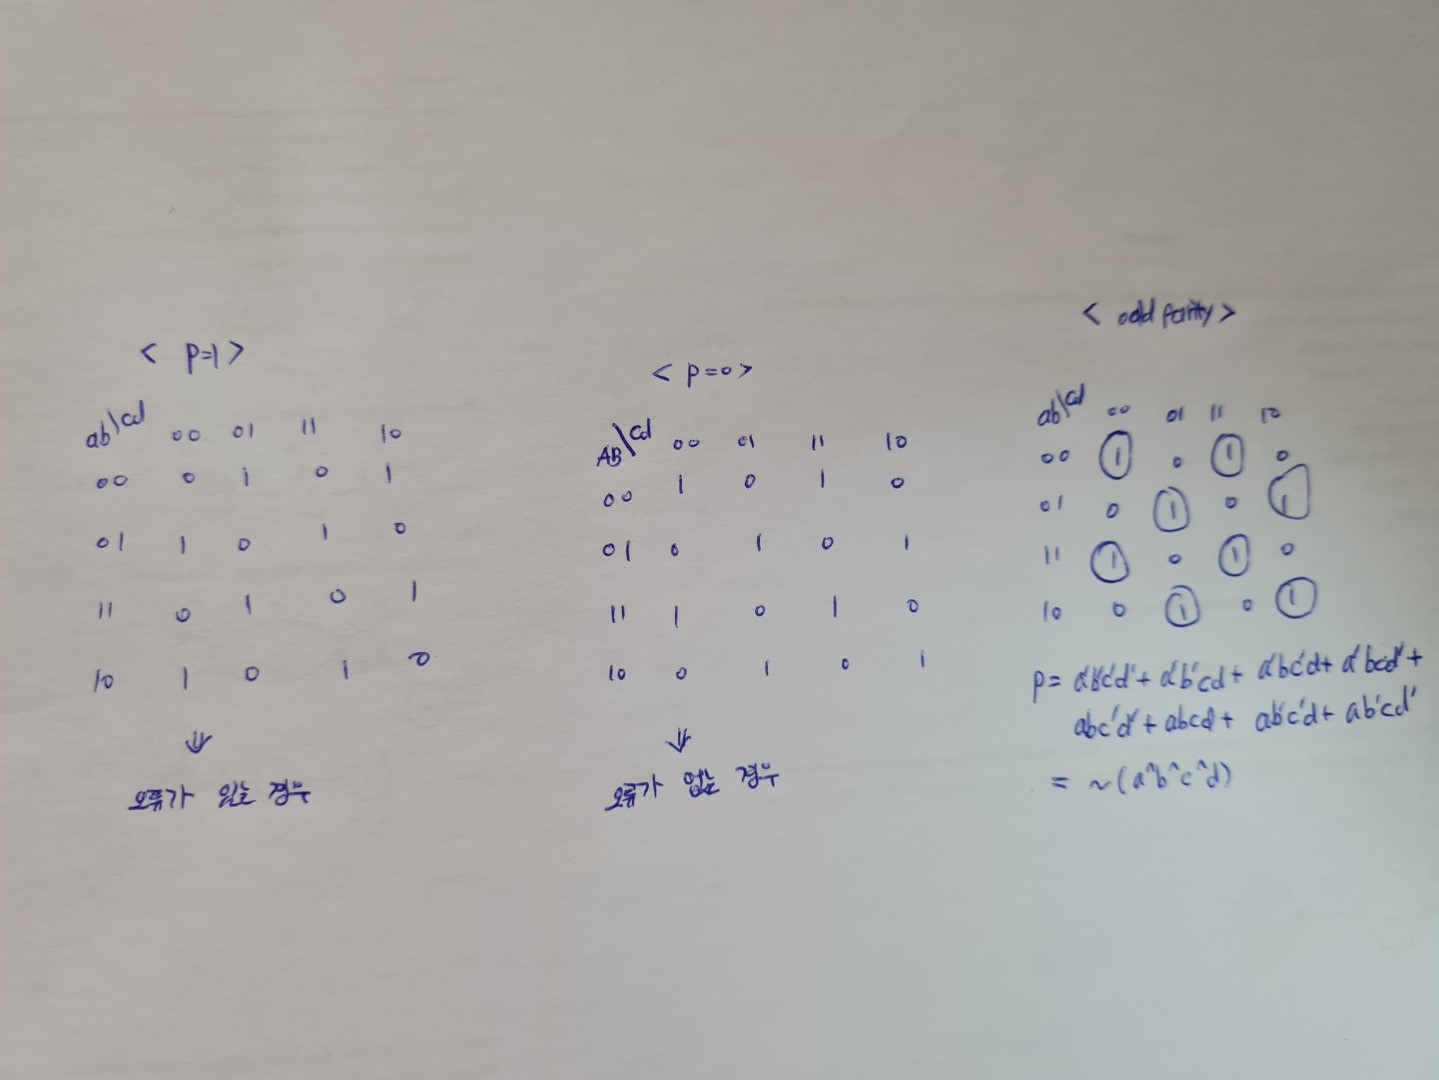 < P=1 >
ab\cd 00 01 11 10
00 0 1 0 1
01 1 0 1 0
11 0 1 0 1
10 1 0 1 0
⇓
오류가 있는 경우
< P=0 >
AB\cd 00 01 11 10
00 1 0 1 0
01 0 1 0 1
11 1 0 1 0
10 0 1 0 1
⇓
오류가 없는 경우
< odd parity >
ab\cd 00 01 11 10
00 1 0 1 0
01 0 1 0 1
11 1 0 1 0
10 0 1 0 1
P= a'b'c'd' + a'b'cd + a'bc'd + a'bcd' +
abc'd' + abcd + ab'c'd + ab'cd'
= ~(a^b^c^d)